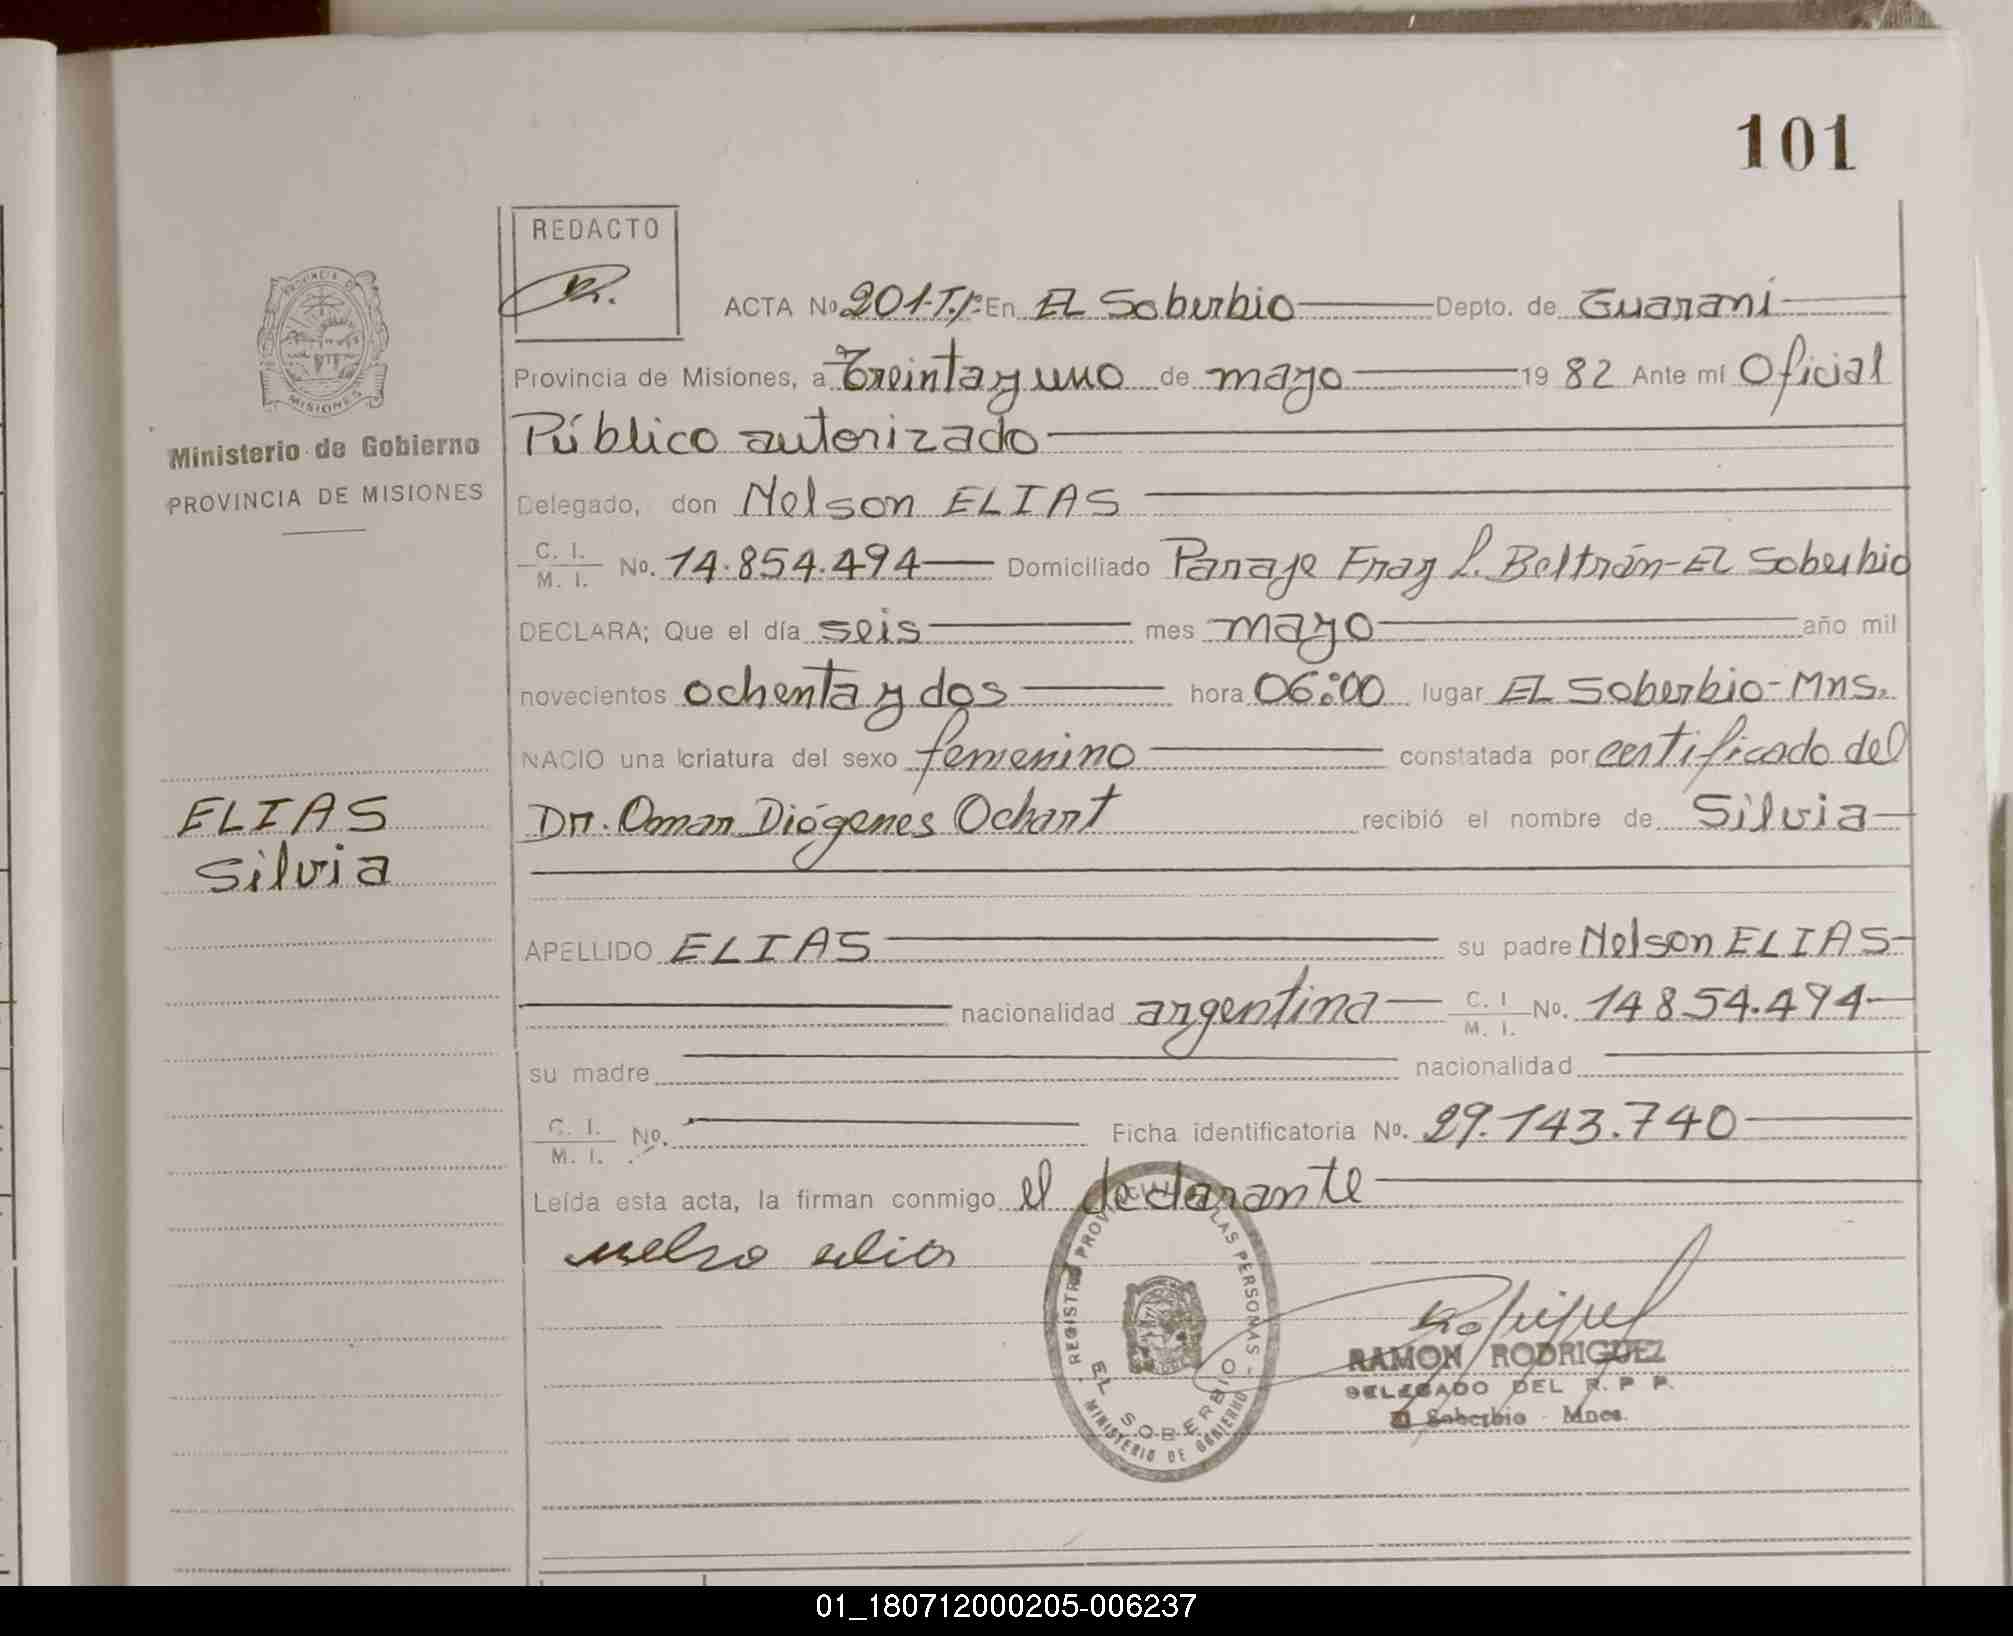 101
REDACTO
ACTA No. 201-T.I: En EL Soberbio Depto. de Guarani
Provincia de Misiones, a Treinta y uno de mayo 19 82 Ante mí Oficial
Público autorizado
Ministerio de Gobierno
PROVINCIA DE MISIONES
Delegado, don Nelson ELIAS
C. I. M. I. No. 14.854.494 Domiciliado Paraje Fray L. Beltrán-EL Soberbio
DECLARA; Que el día seis mes mayo año mil
novecientos ochenta y dos hora 06:00 lugar EL Soberbio-Mns.
NACIO una criatura del sexo femenino constatada por certificado del
Dr. Omar Diógenes Ochart recibió el nombre de Silvia
ELIAS
Silvia
APELLIDO ELIAS su padre Nelson ELIAS
nacionalidad argentina C. I. M. I. No. 14854.494
su madre nacionalidad
C. I. M. I. No. Ficha identificatoria No. 29.143.740
Leída esta acta, la firman conmigo el declarante
nelso elias
REGISTRO PROVINCIAL DE LAS PERSONAS
EL SOBERBIO
MINISTERIO DE GOBIERNO
RAMON RODRIGUEZ
DELEGADO DEL R. P. P.
El Soberbio - Mnes.
01_180712000205-006237